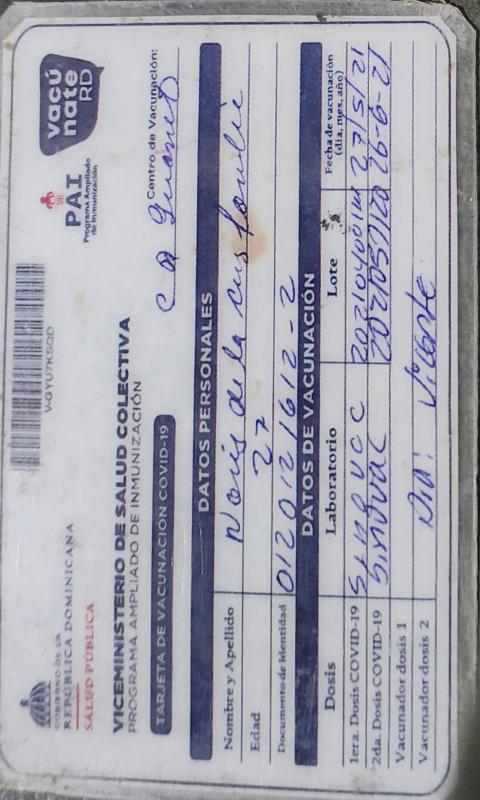 GOBIERNO DE LA
REPÚBLICA DOMINICANA
SALUD PÚBLICA
V-GYU7KSQD
PAI
Programa Ampliado
de Inmunización
vacú
nate
RD
VICEMINISTERIO DE SALUD COLECTIVA
PROGRAMA AMPLIADO DE INMUNIZACIÓN
TARJETA DE VACUNACIÓN COVID-19
Centro de Vacunación:
DATOS PERSONALES
Nombre y Apellido Noris de la cruz
Edad 27
Documento de Identidad 0120121612-2
DATOS DE VACUNACIÓN
Dosis Laboratorio Lote Fecha de vacunación
(día, mes, año)
1era. Dosis COVID-19 27/5/21
2da. Dosis COVID-19 Sinovac 26-6-21
Vacunador dosis 1
Vacunador dosis 2 Vicente